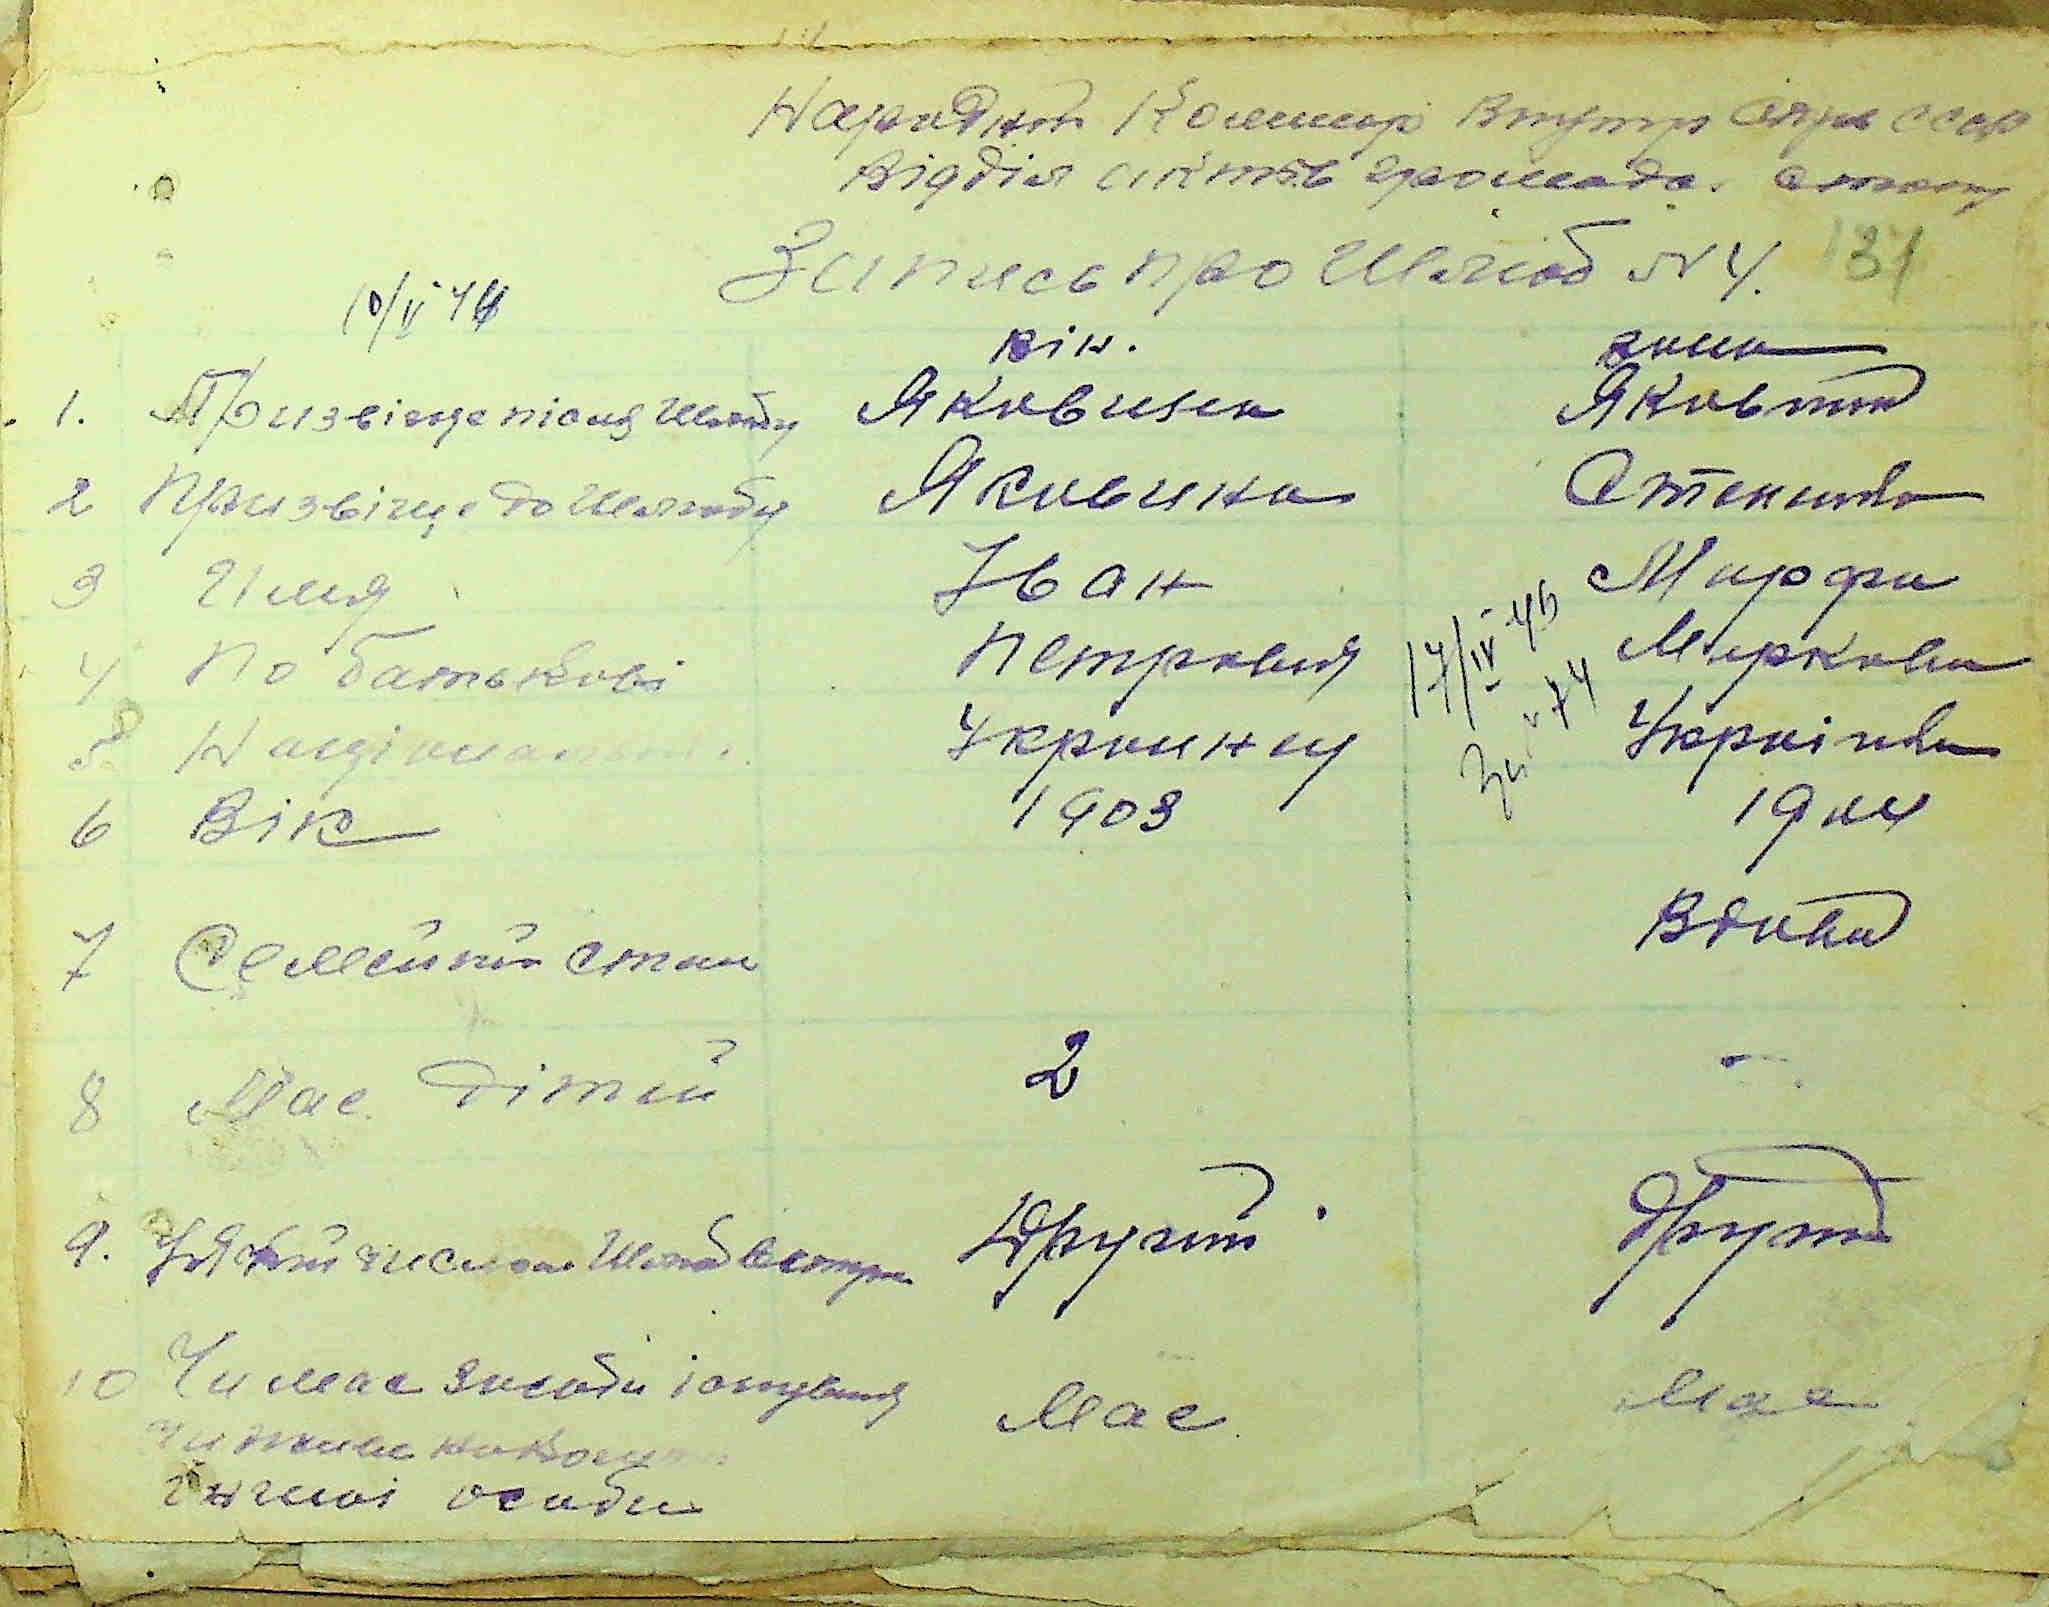 Народний Комисар Внутр Справ ССО
Відділ актів громадя. стану
Запись про Шлюб №4. 131
10/V 44
він. вона
1. Призвіще після Шлюбу Яковина Яковина
2 Призвіще до Шлюбу Яковина
3 Имя Іван Марфа
4 По батькові Петрович Маркова
17/IV 45
5. Національн. Украинец Українка
6 Вік 1903 1904
7 Семейний стан Вдова
8 Має дітей 2 -
9. У який числом Шлюб вступа Другий Друга
10 Чи має засоби існування Має Має
чи живе на кошти
іншої особи